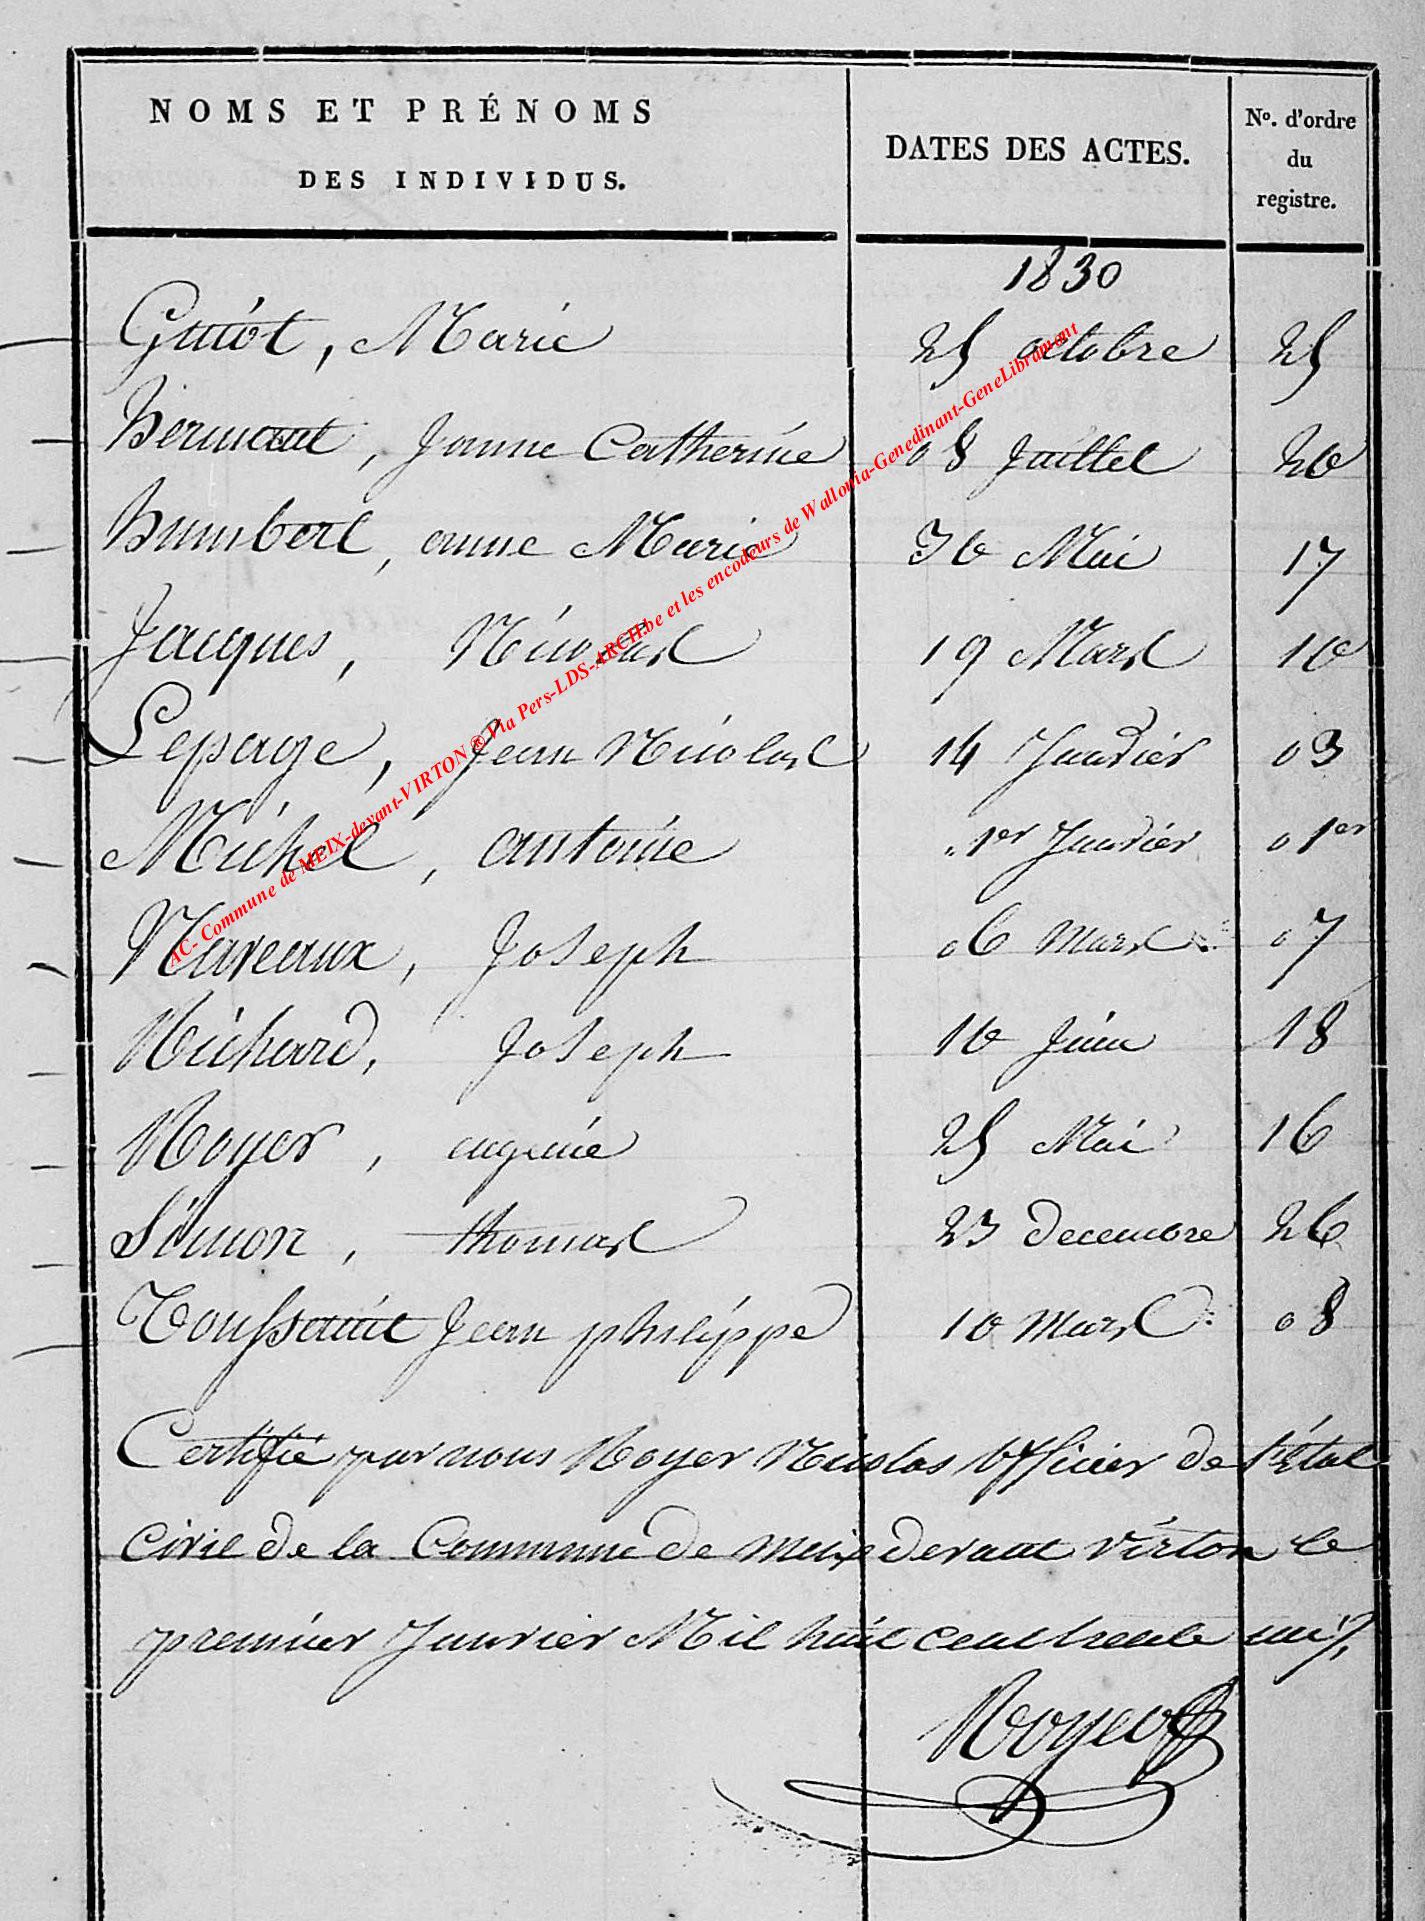 NOMS ET PRÉNOMS
DES INDIVIDUS.
DATES DES ACTES.
No. d'ordre
du
registre.
1830
Guiot, Marie 25 octobre 25
Hermant, Jeanne Catherine 08 Juillet 20
Humbert, anne Marie 30 Mai 17
Jacques, Nicolas 19 Mars 10
Lepage, Jean Nicolas 14 Janvier 03
Michel, antoine 1er Janvier 01er
Naveaux, Joseph 06 Mars 07
Richard, Joseph 10 Juin 18
Royer, eugenie 25 Mai 16
Simon, thomas 23 decembre 26
Toussaint Jean philippe 10 Mars 08
Certifié par nous Royer Nicolas officier de l'État
Civil de la Commune de Meix devant Virton le
premier Janvier Mil huit cent trente un
Royer
AC- Commune de MEIX-devant-VIRTON ® Via Pers-LDS-ARCH.be et les encodeurs de Wallonia-Genedinant-GeneLibramont